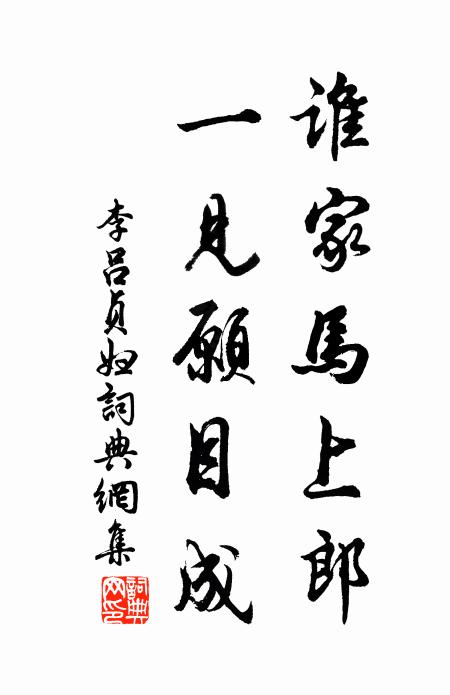 誰家馬上郎
一見願目成
李呂貞妲詞典網集
詞典網印